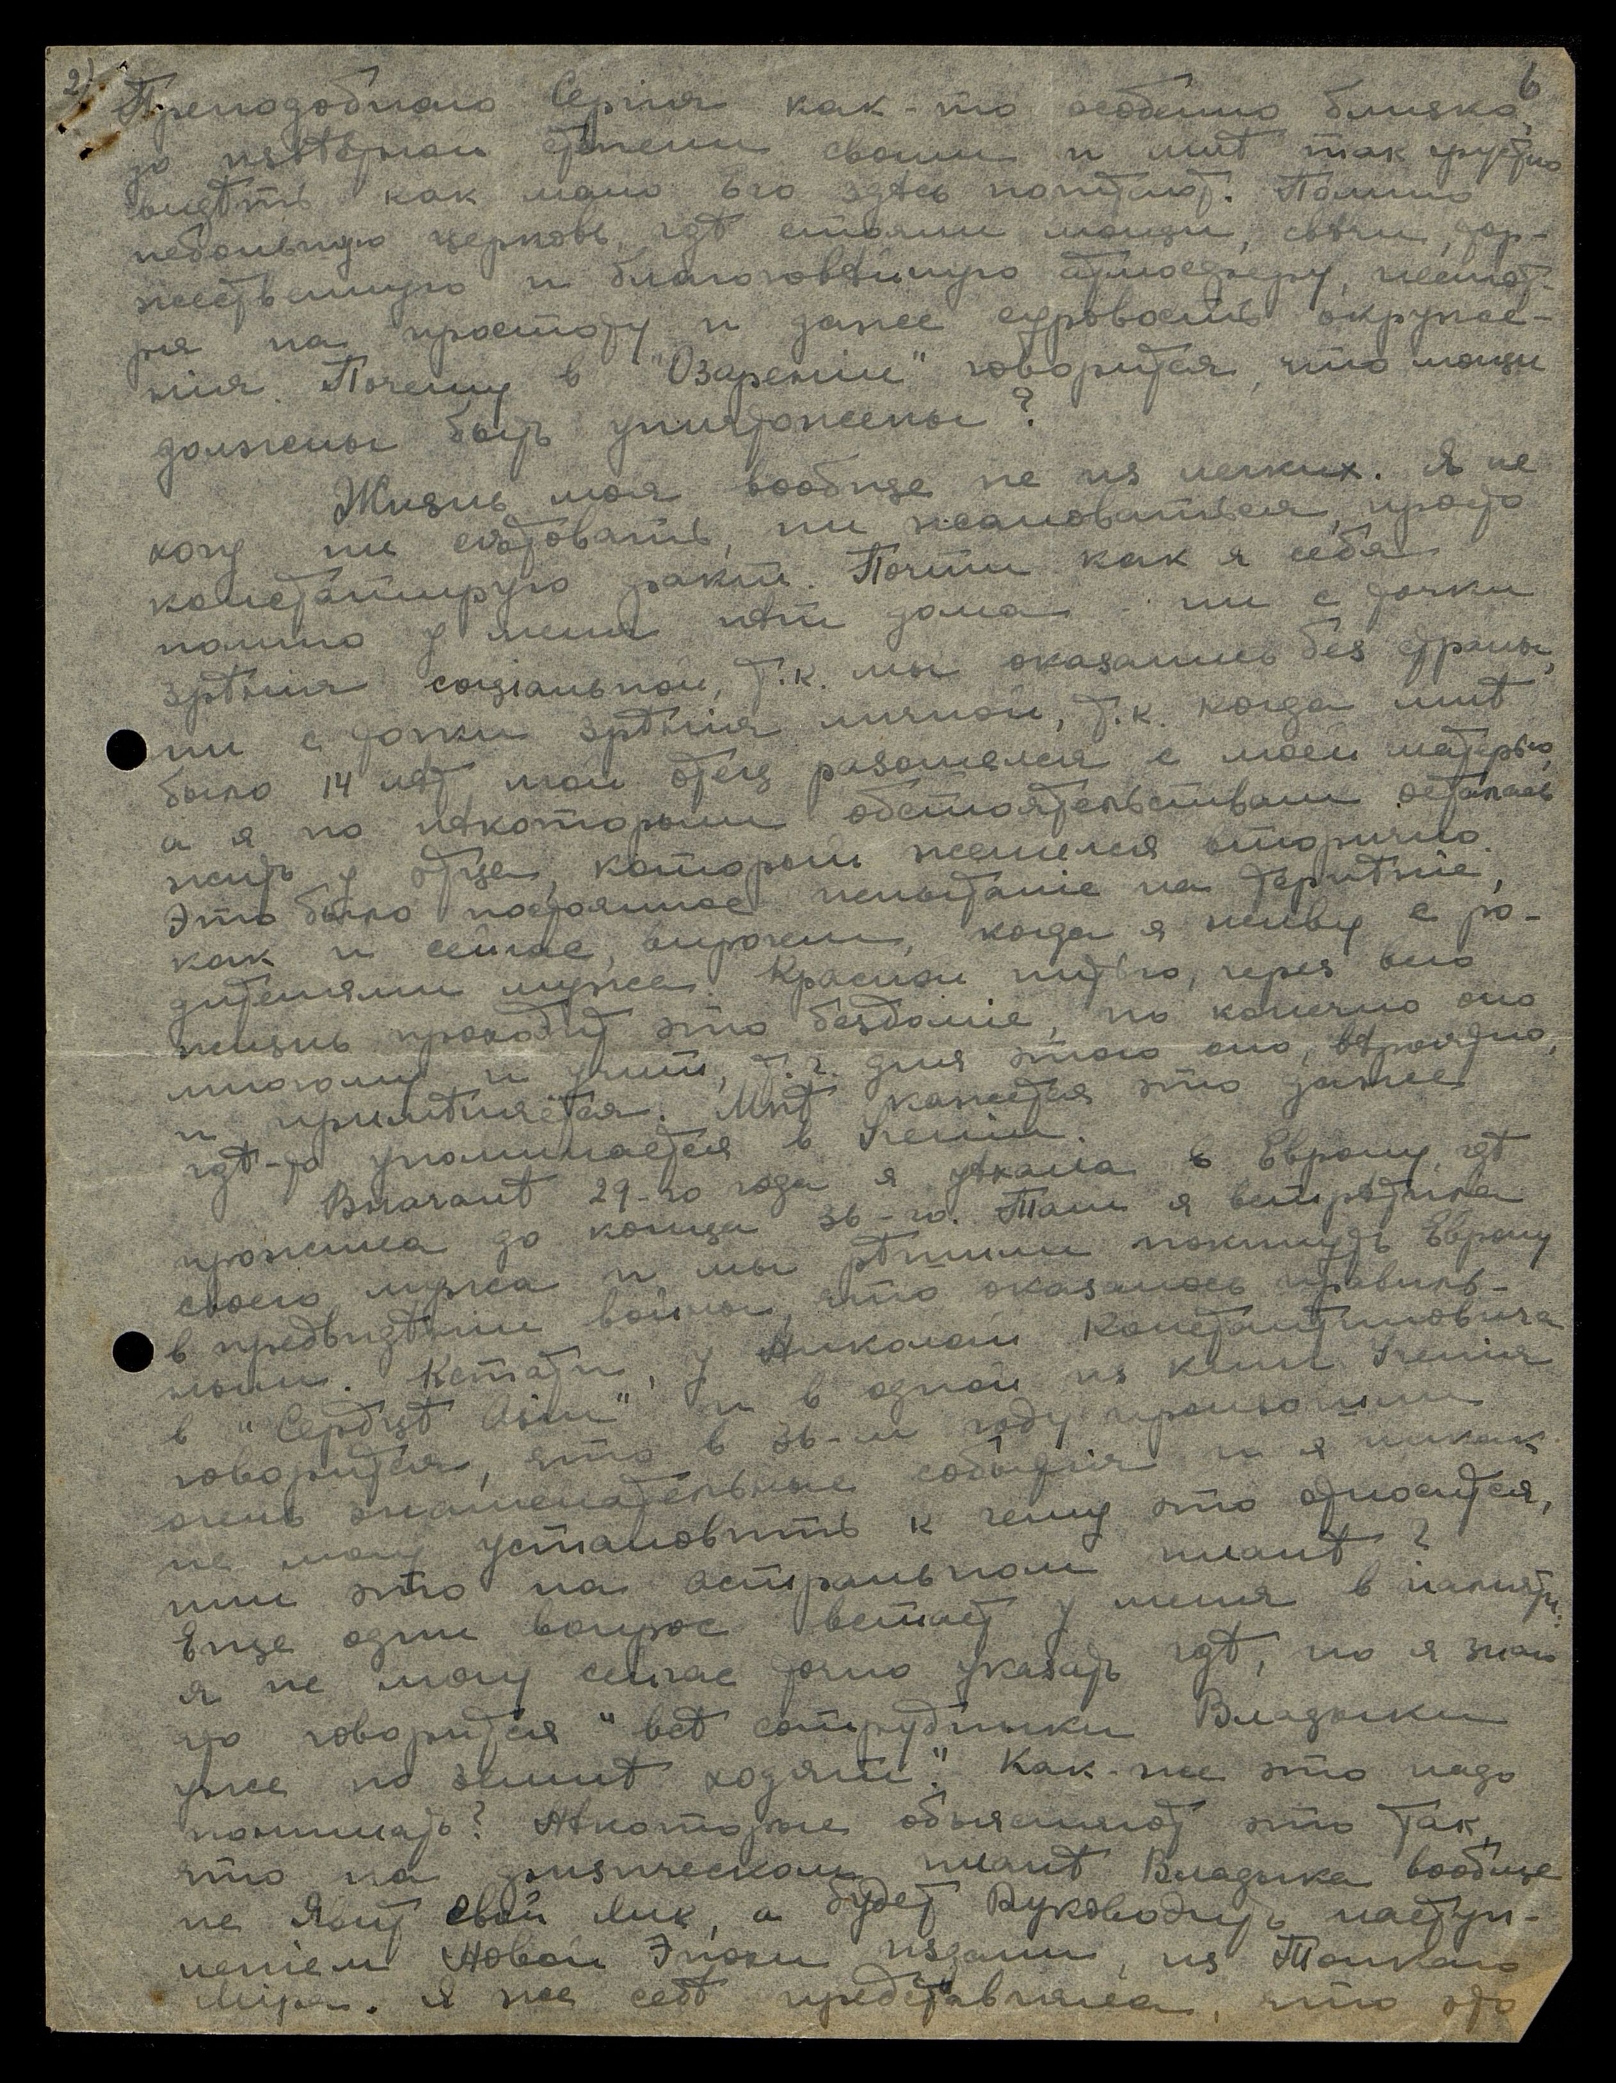 2) 6
Преподобнаго Сергія как-то особенно близко,
до нѣтѣрной степени своим и мнѣ так грустно
видѣть как мало Его здѣсь почитают. Помню
небольшую церковь, гдѣ стояли мощи, свѣчи, тор-
жественную и благоговѣйную атмосферу, несмот-
ря на простоту и даже суровость окруже-
нія. Почему в "Озареніи" говорится, что мощи
должны быть уничтожены?
Жизнь моя вообще не из легких. Я не
хочу ни сѣтовать, ни жаловаться, просто
констатирую факт. Почти как я себя
помню у меня нѣт дома - ни с точки
зрѣнія соціальной, т.к. мы оказались без страны,
ни с точки зрѣнія личной, т.к. когда мнѣ
было 14 лѣт мой отец разошелся с моей матерью,
а я по нѣкоторым обстоятельствам осталась
жить у отца, который женился вторично.
Это было постоянное испытаніе на терпѣніе,
как и сейчас, впрочем, когда я живу с ро-
дителями мужа. Красной нитью, через всю
жизнь проходит это бездоміе, но конечно оно
многому и учит, т.ч. для этого оно, вѣроятно,
и примѣняется. Мнѣ кажется это даже
гдѣ-то упоминается в Ученіи.
Вначалѣ 29-го года я уѣхала в Европу, гдѣ
прожила до конца 36-го. Там я встрѣтила
своего мужа и мы рѣшили покинуть Европу
в предвидѣніи войны, что оказалось правиль-
ным. Кстати, у Николай Константиновича
в "Сердцѣ Азіи" и в одной из книг Ученія
говорится, что в 36-м году произошли
очень знаменательные событія и я никак
не могу установить к чему это относится,
или это на астральном планѣ?
Еще один вопрос встает у меня в памяти:
я не могу сейчас точно указать гдѣ, но я знаю
что говорится "всѣ сотрудники Владыки
уже по землѣ ходят". Как-же это надо
понимать? Нѣкоторые объясняют это так,
что на физическом планѣ Владыка вообще
не Явит Свой Лик, а будет Руководить наступ-
леніем Новой Эпохи издали, из Тонкаго
Міра. Я же себѣ представляла, что это